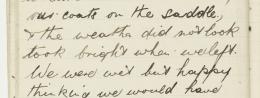 our coats on the saddle,
& the weather did not look
took bright when we left.
We were wet but happy
thinking we would have